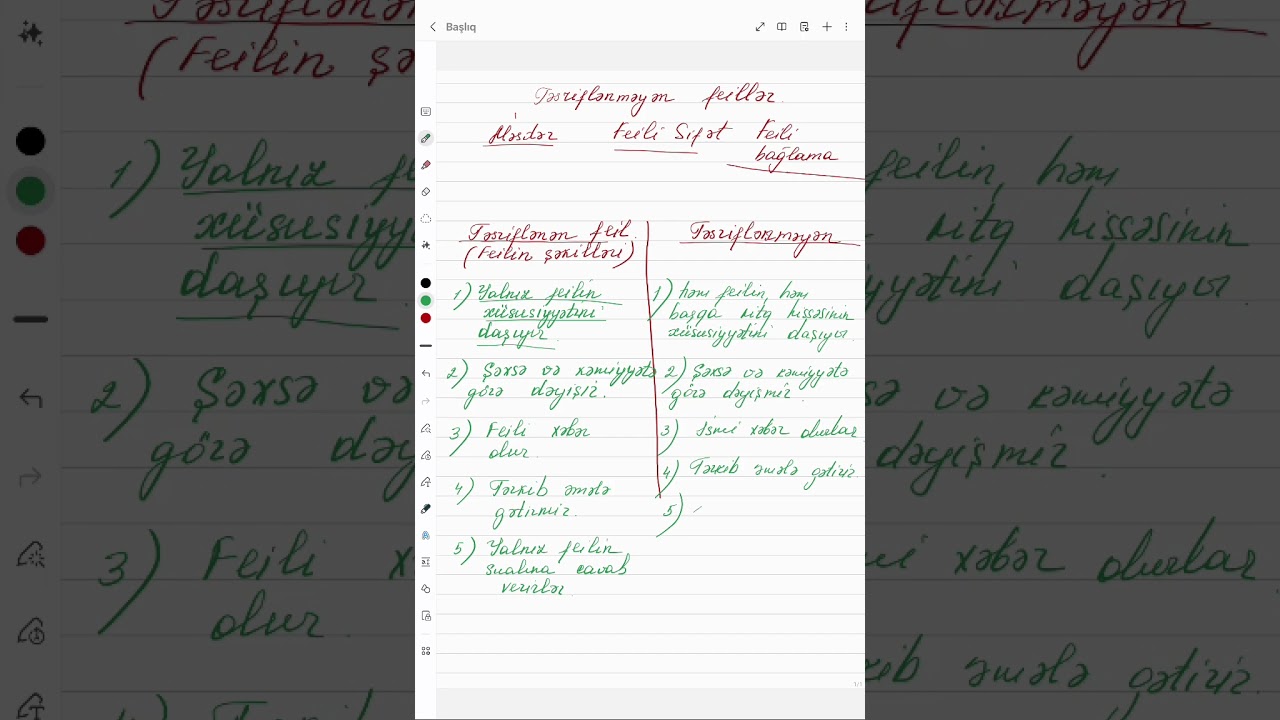 Başlıq
Təsriflənməyən feillər.
Məsdər Feili Sifət Feili
bağlama
Təsriflənən feil.
(Feilin şəkilləri)
1) Yalnız feilin
xüsusiyyətini
daşıyır.
2) Şəxsə və kəmiyyətə
görə dəyişir.
3) Feili xəbər
olur.
4) Tərkib əmələ
gətirmir.
5) Yalnız feilin
sualına cavab
verirlər.
Təsriflənməyən
1) həm feilin, həm
başqa nitq hissəsinin
xüsusiyyətini daşıyır.
2) Şəxsə və kəmiyyətə
görə dəyişmir.
3) İsmi xəbər olurlar
4) Tərkib əmələ gətirir.
5)
1/1